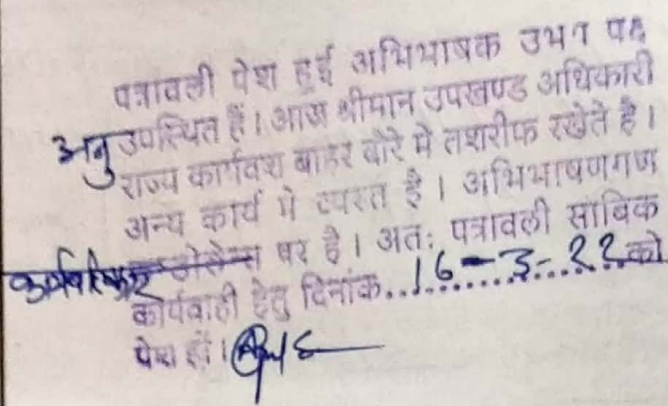 पत्रावली पेश हुई अभिभाषक उभय पक्ष
अनु उपस्थित हैं। आज श्रीमान उपखण्ड अधिकारी
राज्य कार्यवश बाहर दौरे मे तशरीफ रखेते है।
अन्य कार्य मे व्यस्त है। अभिभाषणगण
कार्यबहिष्कार पर है। अतः पत्रावली साबिक
कार्यवाही हेतु दिनांक..16-3-22 को
पेश हों।